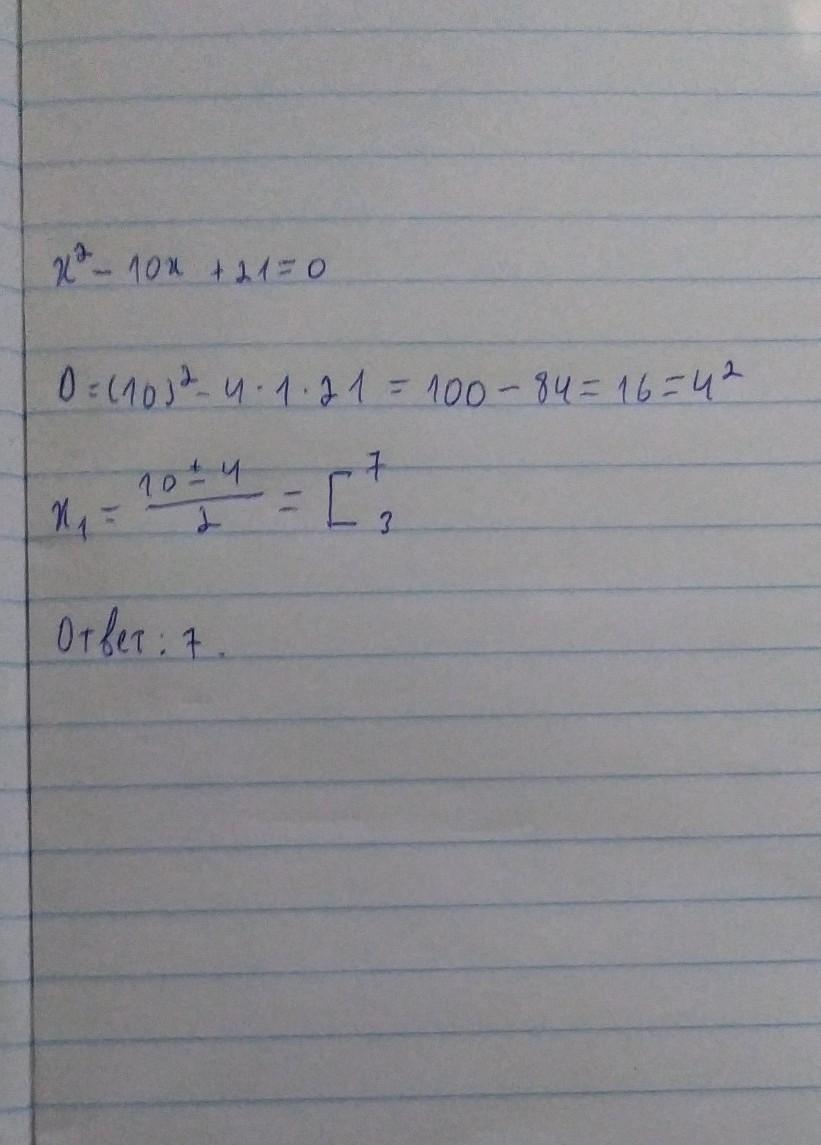 x² - 10x + 21 = 0
D = (10)² - 4 · 1 · 21 = 100 - 84 = 16 = 4²
x₁ = (10 ± 4)/2 = [ 7 3
Ответ: 7.